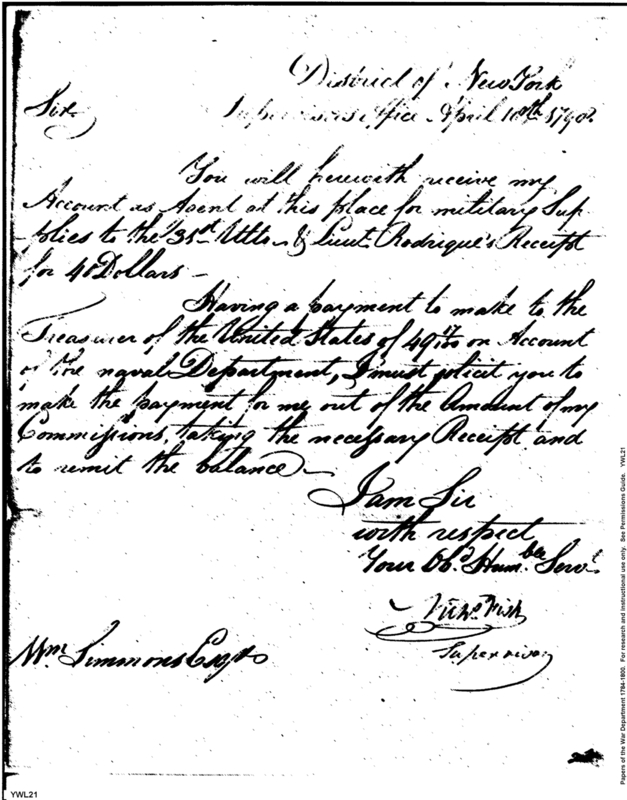 District of New York
Sir
Supervisors office April 10th 1798.
You will herewith receive my
Account as Agent at this place for military Sup
plies to the 31st Ulto. & Lieut. Rodrique's Receipt
for 40 Dollars –
Having a payment to make to the
Treasurer of the United States of on Account
of the naval Department, I must solicit you to
make the payment for me out of the Amount of my
Commissions, taking the necessary Receipt and
to remit the balance –
I am Sir
with respect
Your Obd. Humble Servt.
Nichs Fish
Supervisor
Wm Simmons Esqr
YWL21
Papers of the War Department 1784-1800. For research and instructional use only. See Permissions Guide. YWL21